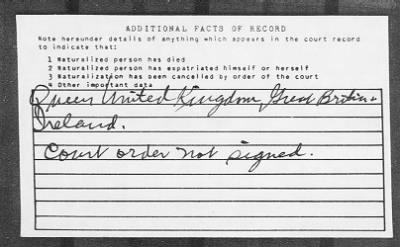 ADDITIONAL FACTS OF RECORD
Note hereunder details of anything which appears in the court record
to indicate that:
1 Naturalized person has died
2 Naturalized person has expatriated himself or herself
3 Naturalization has been cancelled by order of the court
4 Other important data
Queen United Kingdom, Great Britain &
Ireland.
Court order not signed.